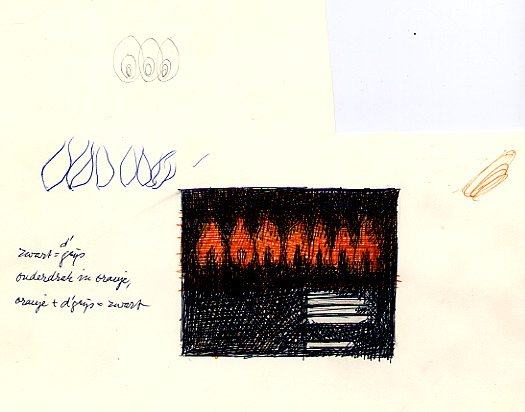 d'
zwart = grijs
onderdruk in oranje,
oranje + d'grijs = zwart